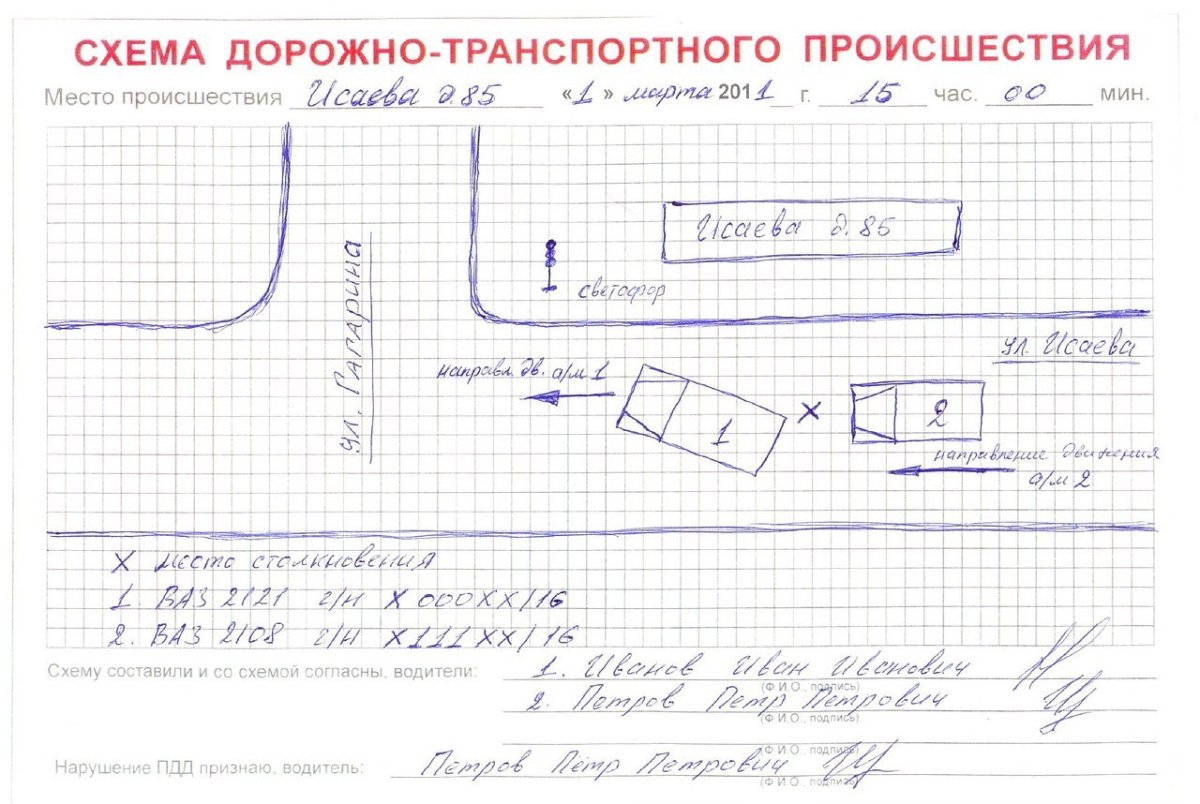 СХЕМА ДОРОЖНО-ТРАНСПОРТНОГО ПРОИСШЕСТВИЯ
Место происшествия Исаева д.85 «1» марта 2011 г. 15 час. 00 мин.
Исаева д.85
светофор
ул. Гагарина
ул. Исаева
направл. дв. а/м 1
1
X
2
направление движения
а/м 2
X место столкновения
1. ВАЗ 2121 г/н X000XX/16
2. ВАЗ 2108 г/н X111XX/16
Схему составили и со схемой согласны, водители: 1. Иванов Иван Иванович
(Ф.И.О., подпись)
2. Петров Петр Петрович
(Ф.И.О., подпись)
(Ф.И.О., подпись)
Нарушение ПДД признаю, водитель: Петров Пётр Петрович
(Ф.И.О., подпись)